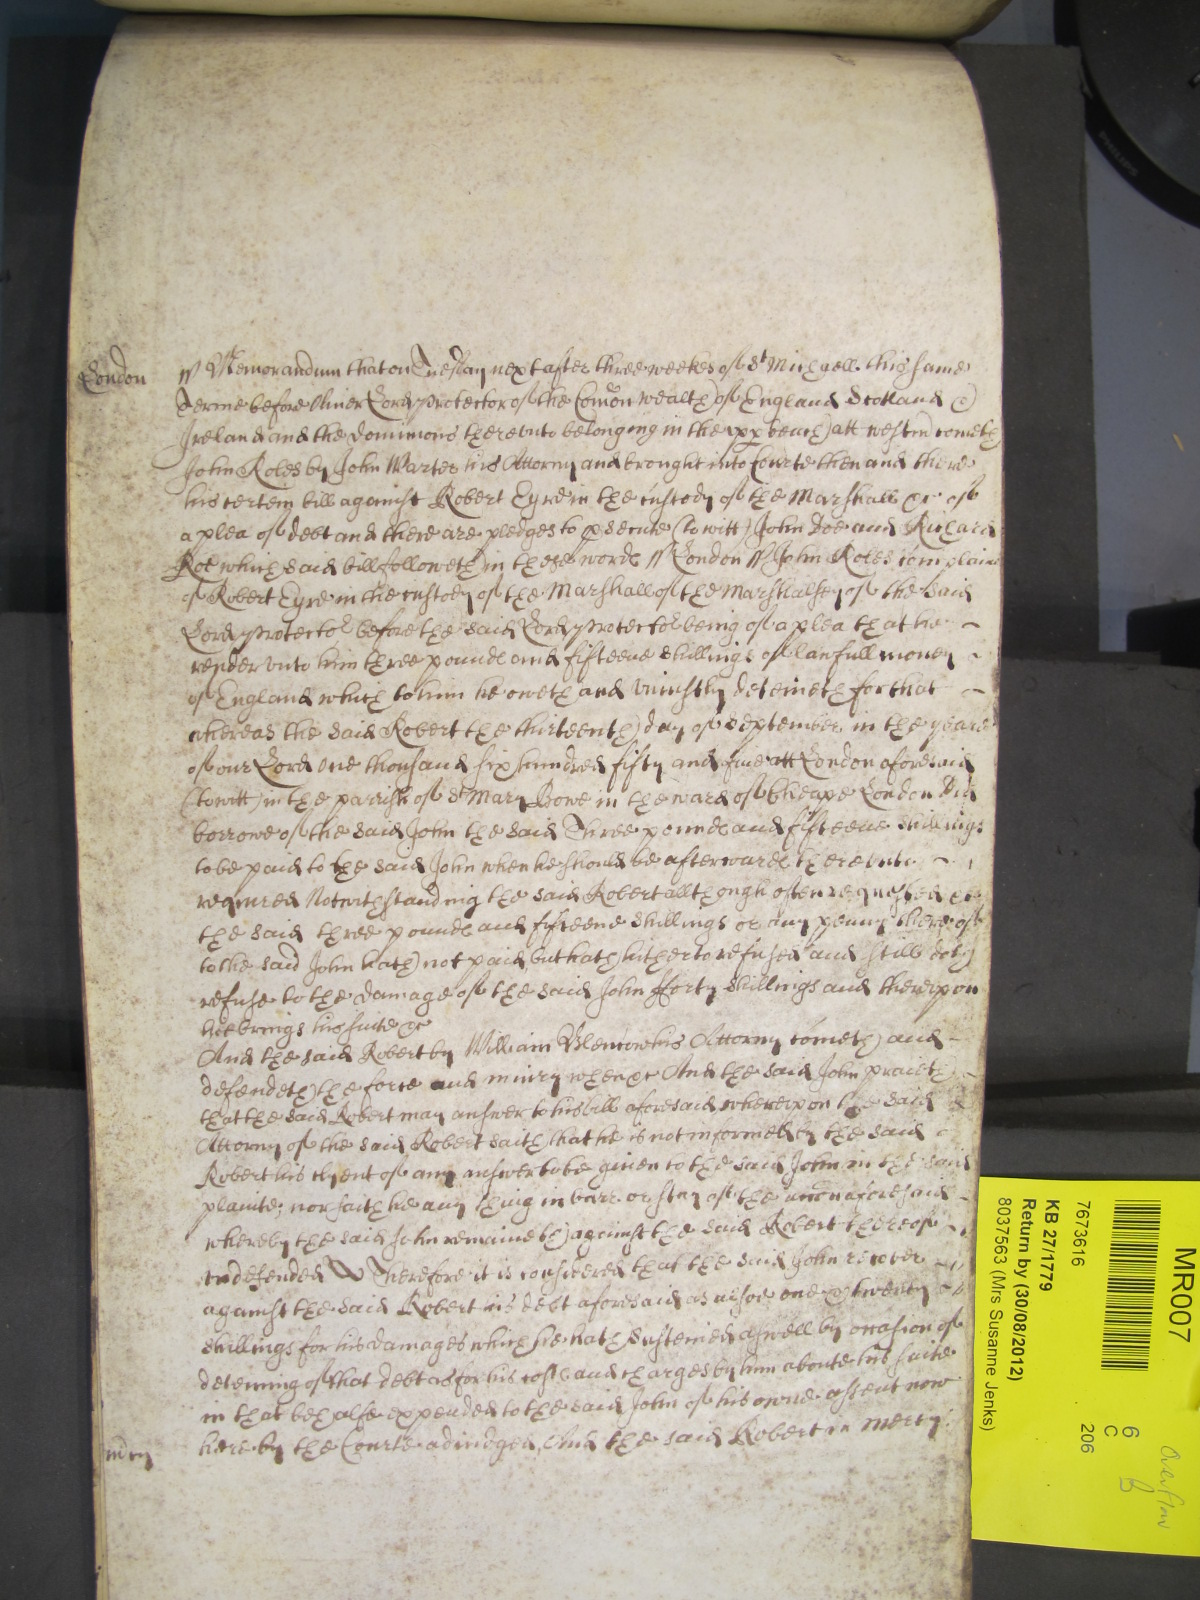 London
// Memorandum that on Tuesday next after three weekes of St Michaell this same
Terme before Oliver Lord Protector of the Comon wealth of England Scotland &
Ireland and the dominions therevnto belonging in the vpp bench att westm cometh
John Roles by John Warter his Attorny and brought into Courte then and there
his certein bill against Robert Eyre in the custody of the Marshall &c of
a plea of debt and there are pledges to psecute (to witt) John Doe and Richard
Roe which said bill followeth in these words // London // John Roles complaines
of Robert Eyre in the custody of the Marshall of the Marshalsey of the said
Lord Protector before the said Lord Protector being of a plea that he
render vnto him three pounds and fifteene shillings of lawfull money
of England which to him he oweth and vniustly deteineth for that
whereas the said Robert the thirteenth day of September in the yeare
of our Lord one thousand six hundred fifty and five att London aforesaid
(to witt) in the parrish of St Mary Bowe in the ward of Cheape London did
borrowe of the said John the said Three pounds and fifteene shillings
to be paid to the said John when he should be afterwards therevnto
required Notwithstanding the said Robert allthough often requested &c
the said three pounds and fifteene shillings or any penny thereof
to the said John hath not paid, but hath hitherto refused and still doth
refuse to the damage of the said John fforty shillings and therevpon
hee brings his suite &c
And the said Robert by William Blencow his Attorny cometh and
defendeth the force and iniury when &c And the said John prayeth
that the said Robert may answer to his bill aforesaid, wherevpon the said
Attorny of the said Robert saith that he is not informed by the said
Robert his clyent of any answer to be given to the said John in the said
plainte; nor saith he any thing in barr or stay of the accon aforesaid
whereby the said John remaineth against the said Robert thereof
vndefended Therefore it is considered that the said John recover
against the said Robert his debt aforesaid as alsoe one & twenty
shillings for his damages which he hath susteined aswell by occasion of
deteining of that debt as for his costs and charges by him aboute his suite
in that behalfe expended to the said John of his owne assent now
here by the Courte adiudged, And the said Robert in mercy
mcy
PHILIPS
MR007
6
C
206
Overflow
B
7673616
KB 27/1779
Return by (30/08/2012)
8037563 (Mrs Susanne Jenks)